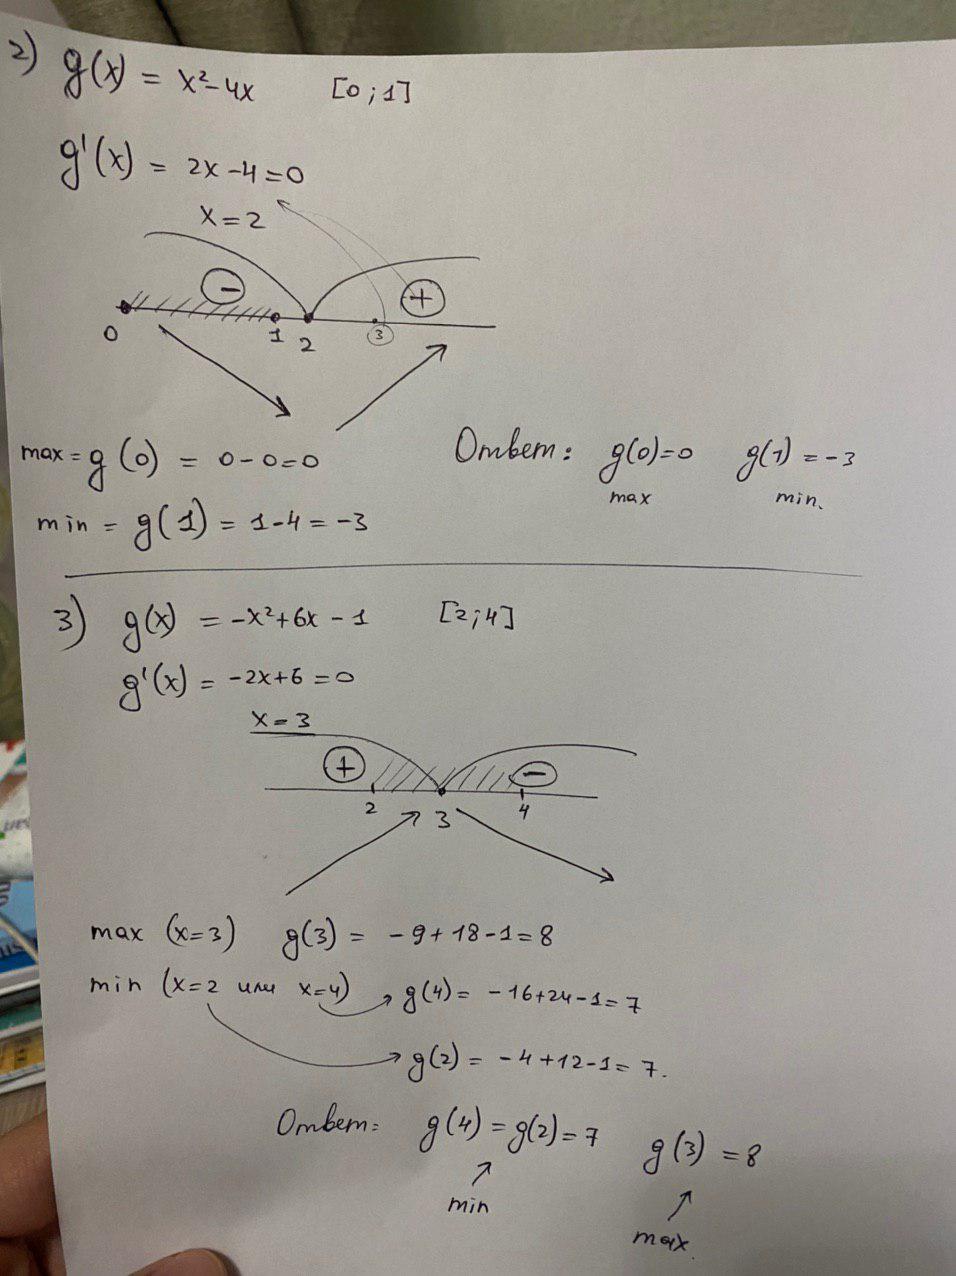 2) g(x) = x²-4x [0;1]
g'(x) = 2x-4=0
x=2
- +
0 1 2 3
max = g(0) = 0-0=0 Ответ: g(0)=0 g(1)=-3
max min.
min = g(1) = 1-4=-3
3) g(x) = -x²+6x-1 [2;4]
g'(x) = -2x+6=0
x=3
+ -
2 3 4
max (x=3) g(3) = -9+18-1=8
min (x=2 или x=4) g(4) = -16+24-1=7
g(2) = -4+12-1=7.
Ответ: g(4)=g(2)=7 g(3)=8
min
max.